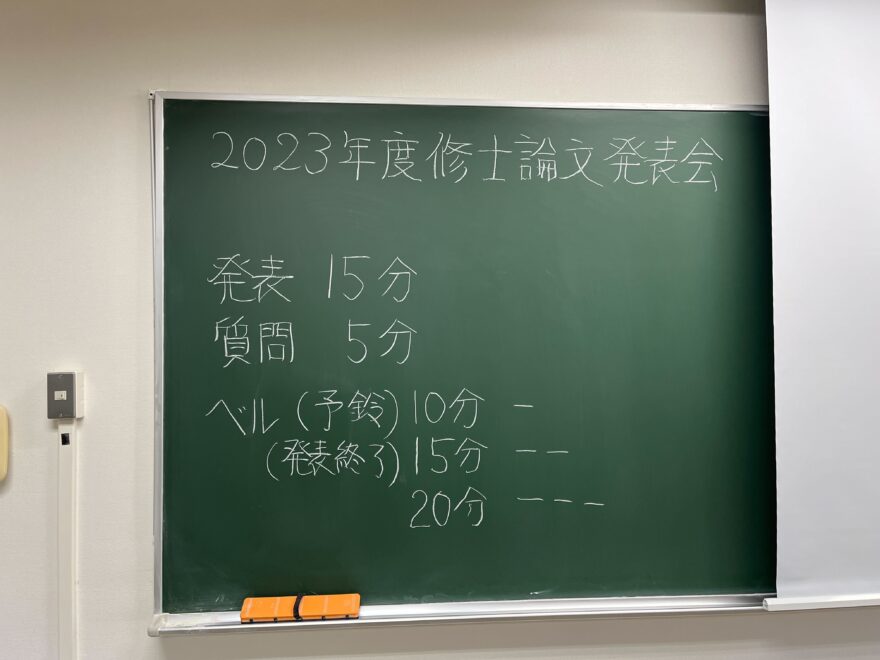 2023年度修士論文発表会
発表 15分
質問 5分
ベル (予鈴) 10分 -
(発表終了) 15分 --
20分 ---